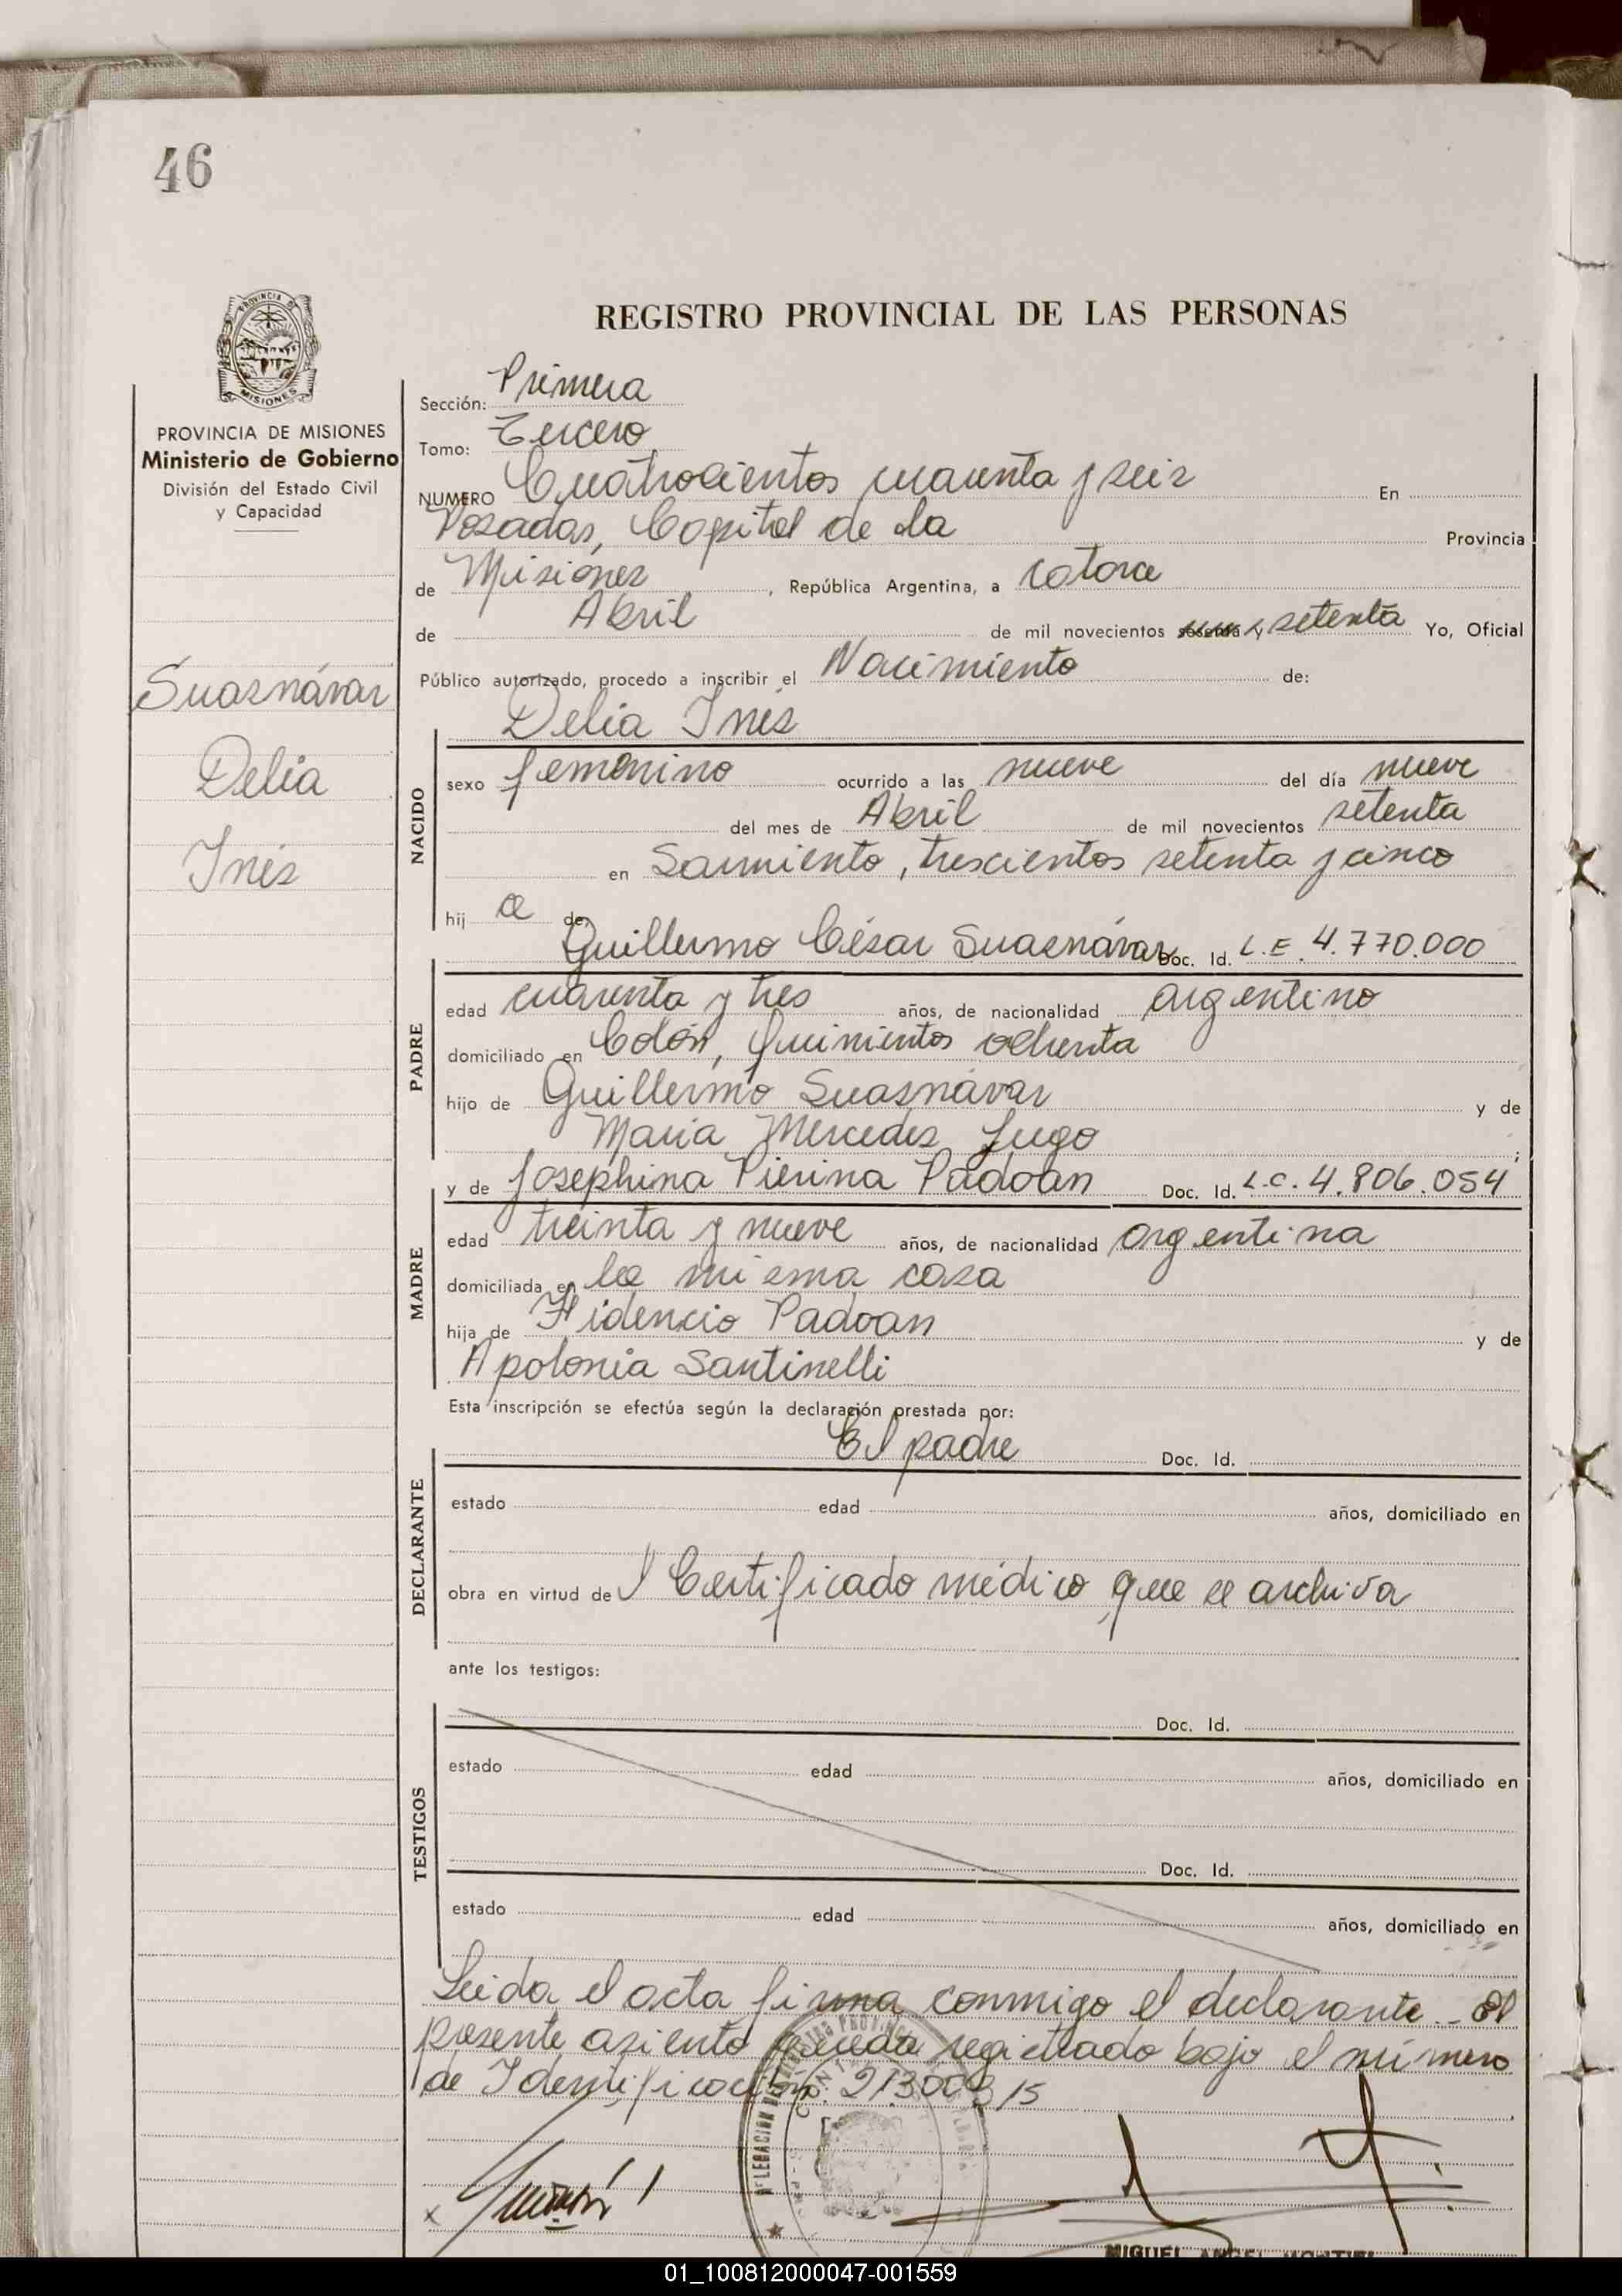 46
REGISTRO PROVINCIAL DE LAS PERSONAS
PROVINCIA DE MISIONES
Ministerio de Gobierno
División del Estado Civil
y Capacidad
Suasnávar
Delia
Inés
Sección: Primera
Tomo: Tercero
NUMERO Cuatrocientos cuarenta y seis En
Posadas, Capital de la Provincia
de Misiones, República Argentina, a catorce
de Abril de mil novecientos sesenta y setenta Yo, Oficial
Público autorizado, procedo a inscribir el Nacimiento de:
Delia Inés
NACIDO
sexo femenino ocurrido a las nueve del día nueve
del mes de Abril de mil novecientos setenta
en Sarmiento, trescientos setenta y cinco
hij a de
Guillermo César Suasnávar Doc. Id. L.E. 4.770.000
PADRE
edad cuarenta y tres años, de nacionalidad argentino
domiciliado en Colón, quinientos ochenta
hijo de Guillermo Suasnávar y de
María Mercedes Lugo ;
y de Josephina Pierina Padoan Doc. Id. L.C. 4.806.054
MADRE
edad treinta y nueve años, de nacionalidad argentina
domiciliada en la misma casa
hija de Fidencio Padoan y de
Apolonia Santinelli
Esta inscripción se efectúa según la declaración prestada por:
El padre Doc. Id.
DECLARANTE
estado edad años, domiciliado en
obra en virtud del Certificado médico que se archiva
ante los testigos:
TESTIGOS
Doc. Id.
estado edad años, domiciliado en
Doc. Id.
estado edad años, domiciliado en
Leida el acta firma conmigo el declarante.- El
presente asiento queda registrado bajo el número
de Identificación: 21.300.315
MIGUEL ANGEL MONTIEL
01_100812000047-001559